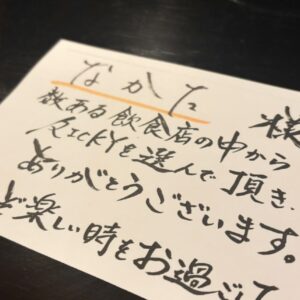 なかた 様
数ある飲食店の中から
RICKYを選んで頂き、
ありがとうございます。
ぞ楽しい時をお過ごし